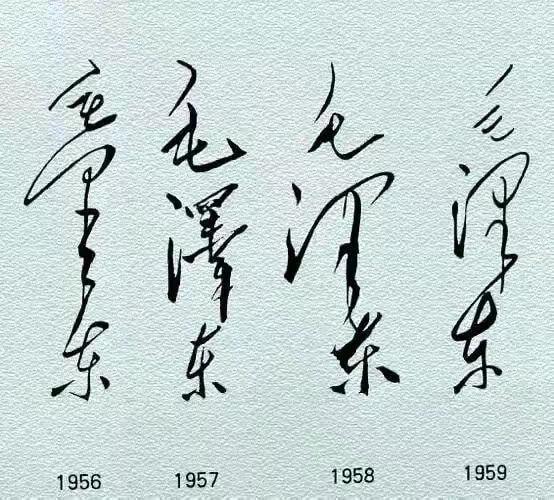 毛泽东
毛澤东
毛泽东
毛泽东
1956
1957
1958
1959